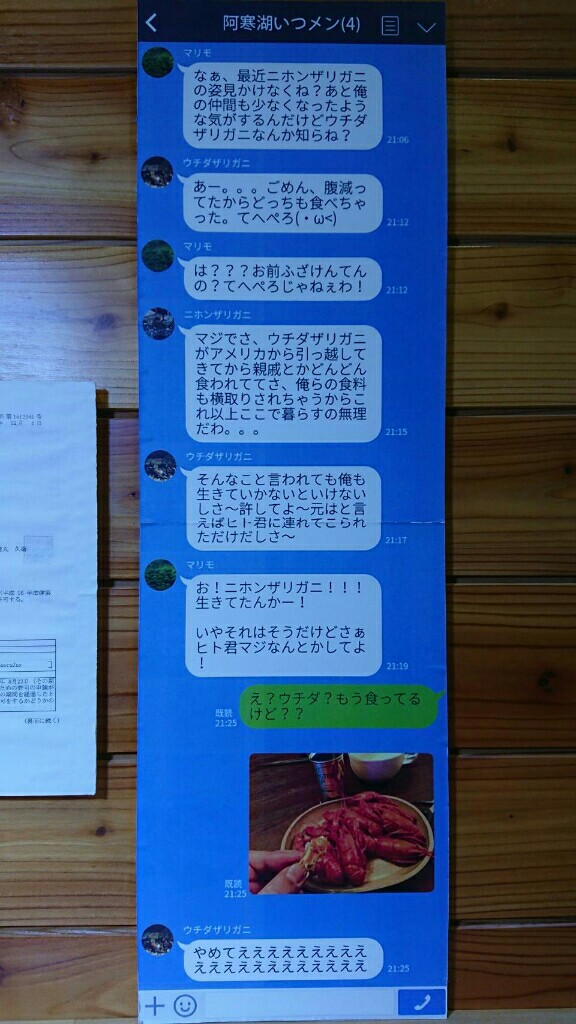 阿寒湖いつメン(4)
マリモ
なぁ、最近ニホンザリガニ
の姿見かけなくね？あと俺
の仲間も少なくなったよう
な気がするんだけどウチダ
ザリガニなんか知らね？
21:06
ウチダザリガニ
あー。。。ごめん、腹減っ
てたからどっちも食べちゃ
った。てへぺろ(・ω<)
21:12
マリモ
は？？？お前ふざけんてん
の？てへぺろじゃねぇわ！
21:12
ニホンザリガニ
マジでさ、ウチダザリガニ
がアメリカから引っ越して
きてから親戚とかどんどん
食われててさ、俺らの食料
も横取りされちゃうからこ
れ以上ここで暮らすの無理
だわ。。。
21:15
ウチダザリガニ
そんなこと言われても俺も
生きていかないといけない
しさ～許してよ～元はと言
えばヒト君に連れてこられ
ただけだしさ～
21:17
マリモ
お！ニホンザリガニ！！！
生きてたんかー！
いやそれはそうだけどさぁ
ヒト君マジなんとかしてよ
！
21:19
え？ウチダ？もう食ってる
けど？？
既読
21:25
既読
21:25
ウチダザリガニ
やめてえええええええええ
ええええええええええええ
21:25
(裏面に続く)